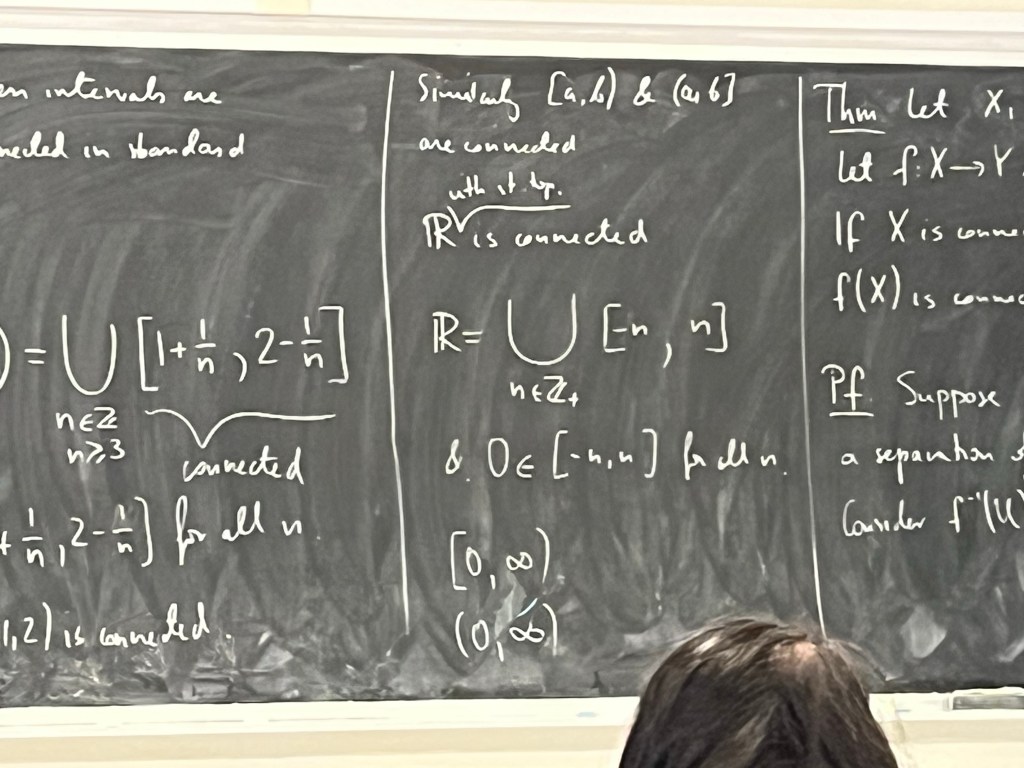 en intervals are
nected in standard
) = ⋃ [1+1/n, 2-1/n]
n∈ℤ
n≥3
connected
+ 1/n, 2-1/n] for all n
1,2) is connected.
Similarly [a,b) & (a,b]
are connected
with st. top.
ℝ is connected
ℝ = ⋃ [-n, n]
n∈ℤ₊
& 0∈ [-n,n] for all n.
[0, ∞)
(0, ∞)
Thm Let X,
Let f: X→Y
If X is conne
f(X) is connec
Pf. Suppose
a separation
Consider f⁻¹(U)